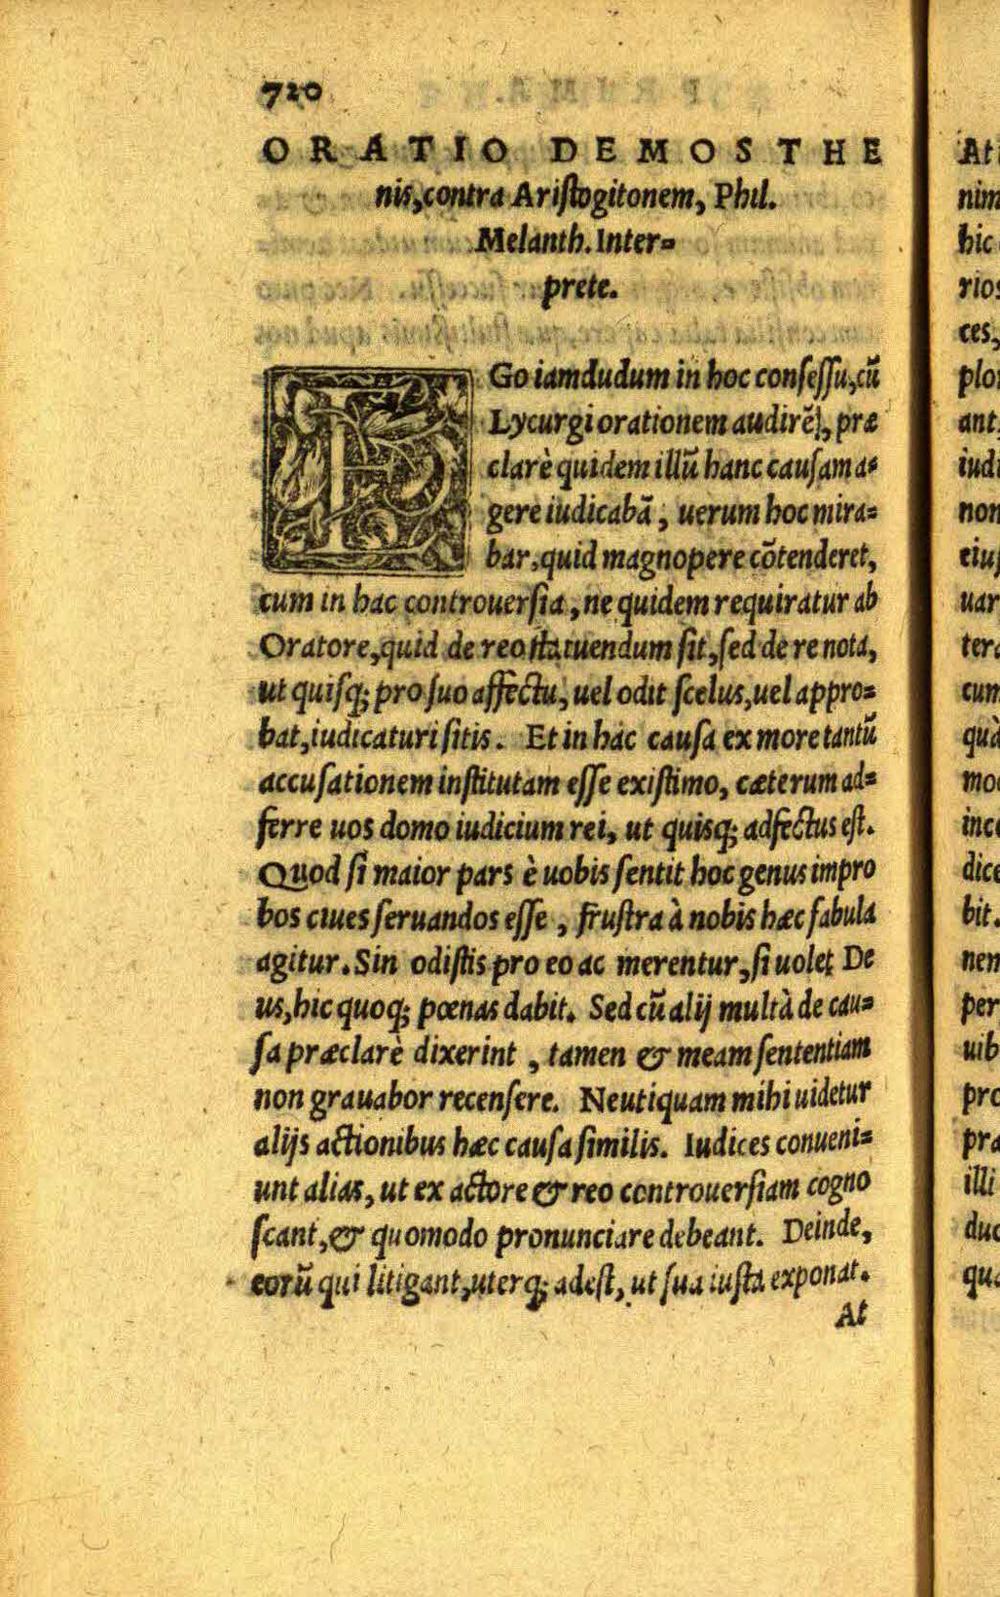 720
ORATIO DEMOSTHE
nis, contra Aristogitonem, Phil.
Melanth. Inter=
prete.
EGo iamdudum in hoc consessu, cũ
Lycurgi orationem audirẽ, præ
clarè quidem illũ hanc causam a=
gere iudicabã, uerum hoc mira=
bar, quid magnopere cõtenderet,
cum in hac controuersia, ne quidem requiratur ab
Oratore, quid de reo statuendum sit, sed de re nota,
ut quisq; pro suo affectu, uel odit scelus, uel appro=
bat, iudicaturi sitis. Et in hac causa ex more tantũ
accusationem institutam esse existimo, cæterum ad=
ferre uos domo iudicium rei, ut quisq; adfectus est.
Quod si maior pars è uobis sentit hoc genus impro
bos ciues seruandos esse, frustra à nobis hæc fabula
agitur. Sin odistis pro eo ac merentur, si uolet De
us, hic quoq; pœnas dabit. Sed cũ alij multà de cau=
sa præclarè dixerint, tamen & meam sententiam
non grauabor recensere. Neutiquam mihi uidetur
alijs actionibus hæc causa similis. Iudices conueni=
unt alias, ut ex actore & reo controuersiam cogno
scant, & quomodo pronunciare debeant. Deinde,
eorũ qui litigant, uterq; adest, ut sua iusta exponat.
At